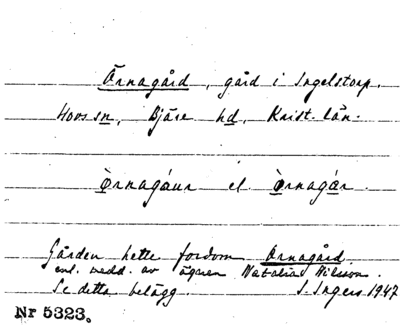 Örnagård, gård i Ingelstorp.
Hovs sn, Bjäre hd, Krist. län.
Òrnagáur el. Òrnagár.
Gården hette fordom Arnagård
enl. medd. av ägaren Natalia Nilsson.
Se detta belägg. S. Ingers 1947
Nr 5323.